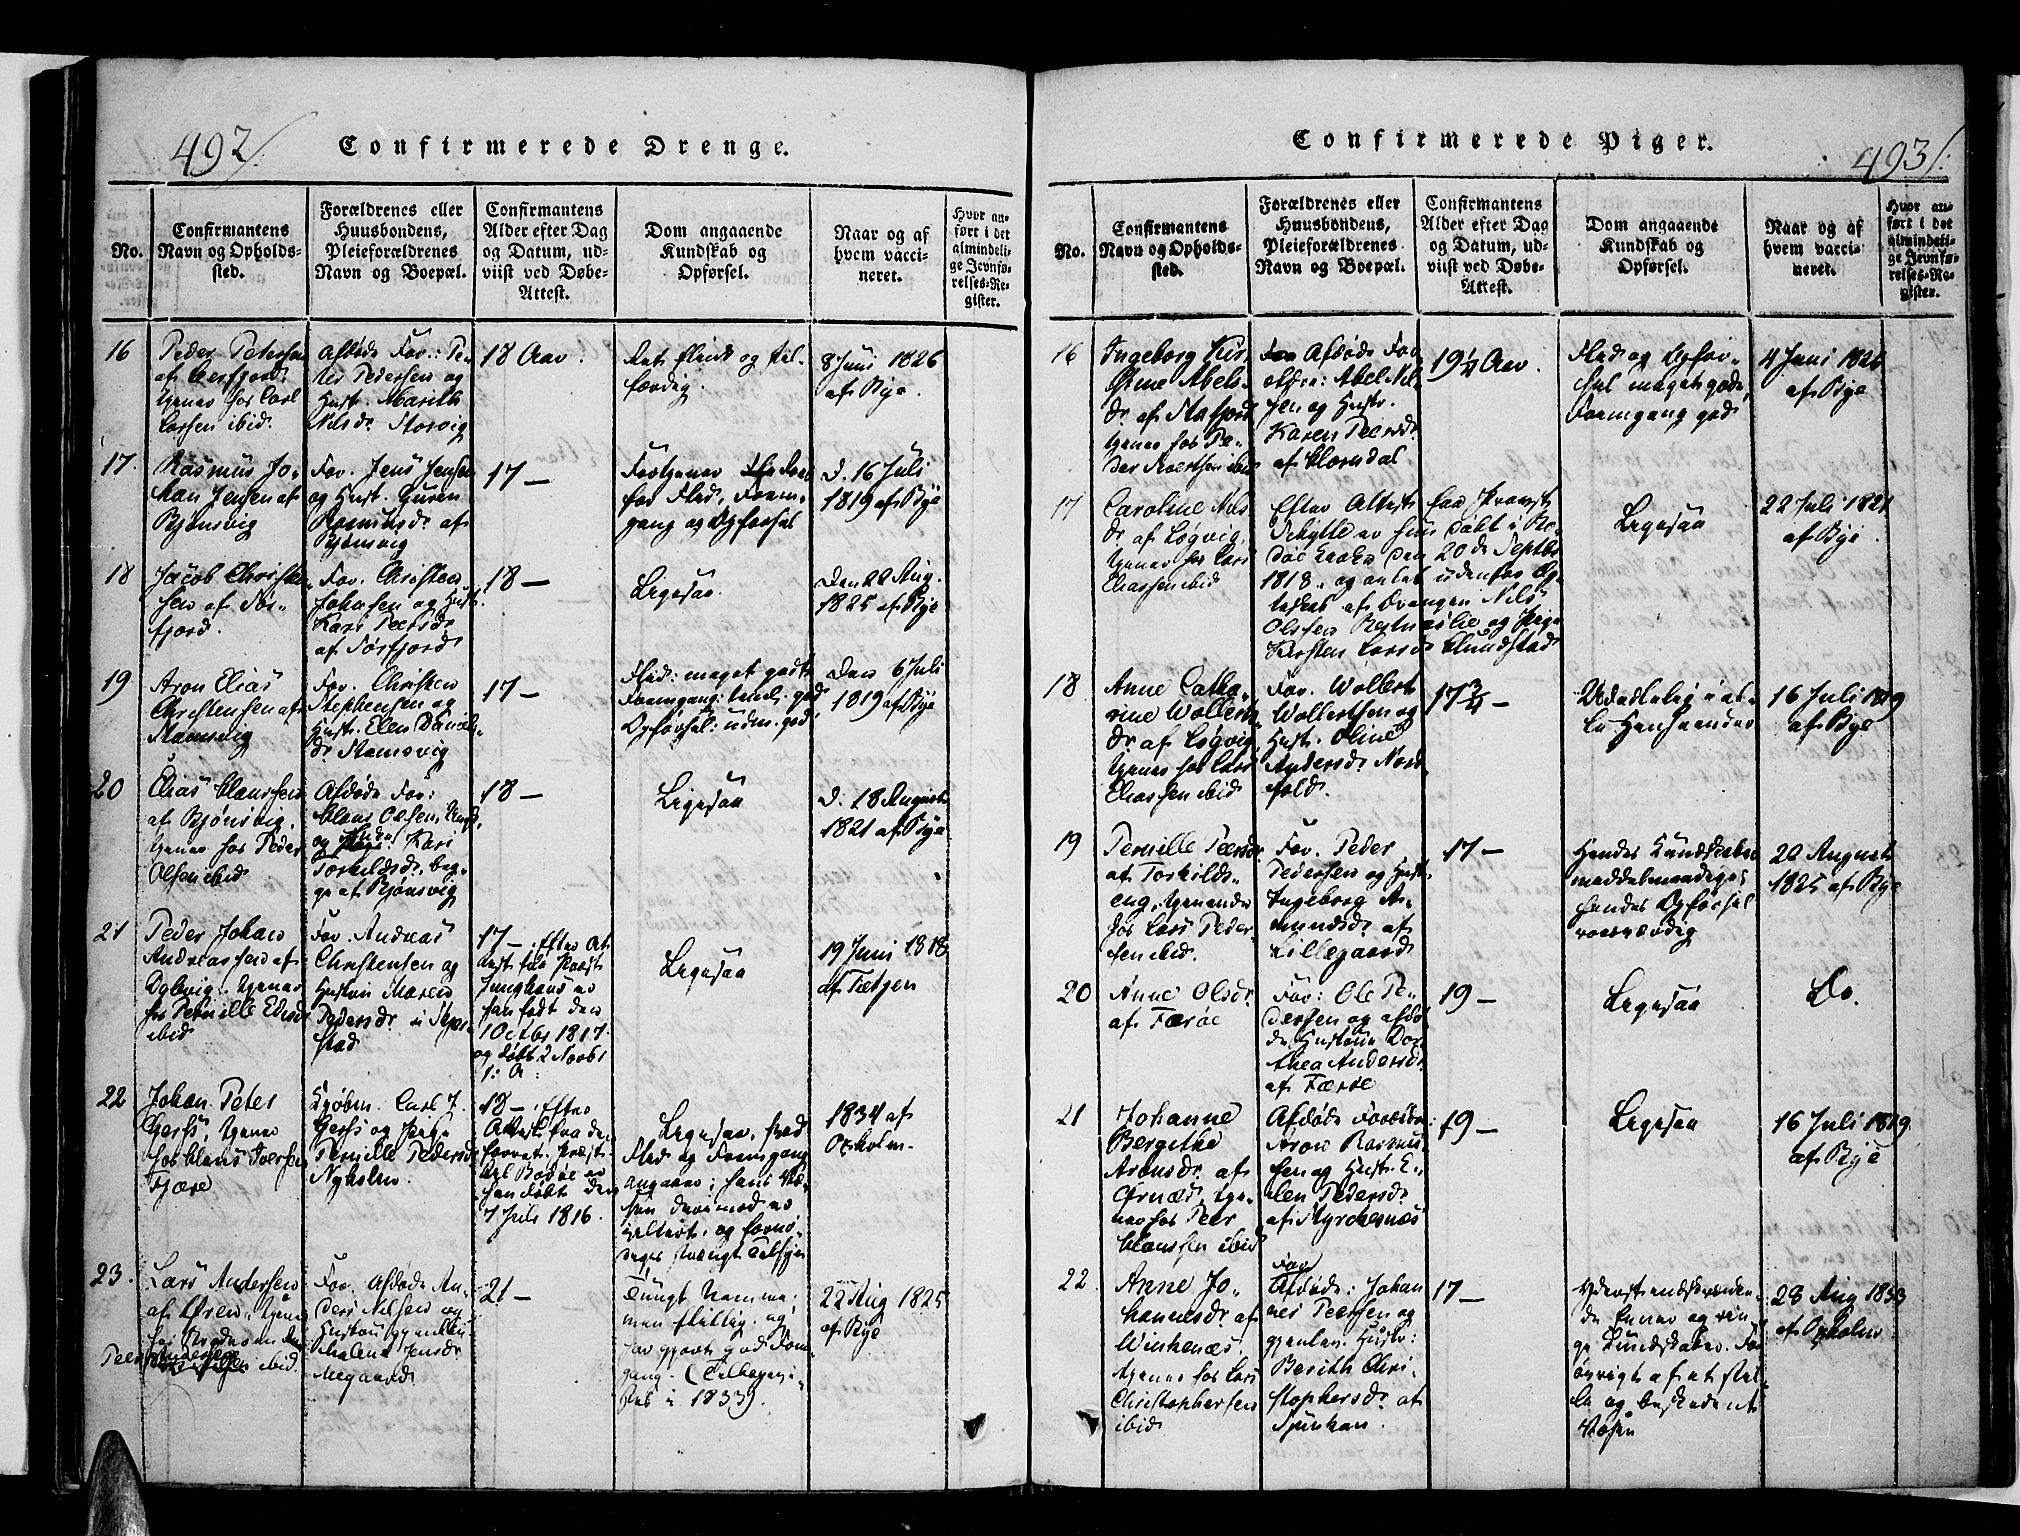 492/.
Confirmerede Drenge.
No.
Confirmantens
Navn og Opholds-
sted.
Forældrenes eller
Huusbondens,
Pleieforældrenes
Navn og Boepæl.
Confirmantens
Alder efter Dag
og Datum, ud-
viist ved Døbe-
Attest.
Dom angaaende
Kundskab og
Opførsel.
Naar og af
hvem vacci-
neret.
Hvor an-
ført i det
almindeli-
ge Jevnfø-
relses-Re-
gister.
16
Peder Petersen
af
tjener hos Carl
Larsen ibid.
Afdøde For.: Pe-
der Pedersen og
Hust. Marith
Nilsdr. Storvig
18 Aar.
Ret flink og
færdig.
8 Juni 1826
af Bye.
17.
Rasmus Jo-
han Jensen af
Bjønsvig
For. Jens Jensen
og Hust. Guren
Rasmusdr. af
Bjønsvig
17 —
Fortjener
for Flid, Frem-
gang og Opførsel
d. 16 Juli
1819 af Bye
18
Jacob Christen-
sen af Sør-
fjord.
For. Christen
Johnsen og Hust.
Kari Peersdr.
af Sørfjord
18 —
Ligesaa.
den 22 Aug.
1825 af Bye
19
Aron Elias
Christensen af
Stamsvig
For. Christen
Stephensen og
Hust. Elen Daniels-
dr. Stamsvig
17 —
Flid: meget godt
Fremgang: temel. god
Opførsel: udm. god.
den 6 Juli
1819 af Bye
20
Elias Clausen
af Bjønsvig,
tjener hos Peder
Olsen ibid
Afdøde For:
Claus Olsen,
og Kari
Torkildsdr. beg-
ge af Bjønsvig
18 —
Ligesaa
d. 18 August
1821 af Bye
21
Peder Johan
Andreassen af
tjener
hos Pernille
ibid
For. Andreas
Christensen og
Hustru Maren
Pedersdr.
17 —. Efter At-
test fra Præst
Junghans er
han født den
1 Octbr 1817.
og døbt 2 Novbr
s: A:
Ligesaa
19 Juni 1818
af Tetgen
22
Johan Peter
Gerss, tjener
hos Claus Iversen
Fjære
Kjøbm. Carl J.
Gerss og Pige
Pernille Pedersdr.
Nyholm.
18 —. Efter
Attest fra den
forret. Præst
ved Bodøe er
han født den
7 Juli 1816.
Ligesaa, hvad
Flid og Fremgang
angaaer; hans Væ-
sen derimod er
og fornø-
1834 af
Oxholm.
23.
Lars Andersen
af Øren, tjener
hos
Peer Andersen
ibid.
For. Afdøde An-
ders Nilsen og
Hustru gjenlev
Malena Jensdr.
Megaard
21 —
Tungt Nemme;
men flittig. og
har gjort god Frem-
gang. (Tilbagevi-
ist i 1833).
22 Aug 1825
af Bye
493/.
Confirmerede Piger.
No.
Confirmantens
Navn og Opholds-
sted.
Forældrenes eller
Huusbondens,
Pleieforældrenes
Navn og Boepæl.
Confirmantens
Alder efter Dag
og Datum, ud-
viist ved Døbe-
Attest.
Dom angaaende
Kundskab og
Opførsel.
Naar og af
hvem vacci-
neret.
Hvor an-
ført i det
almindeli-
ge Jevnfø-
relses-Re-
gister.
16
Ingeborg Kir-
stine Abels-
dr. af
tjener hos Pe-
der ibid
Afdøde For-
ældre: Abel Nil-
sen og Hustr.
Karen Peersdr.
af
19¼ Aar.
Flid og Opfør-
sel meget gode,
Fremgang god
4 Juni 1826
af Bye
17
Caroline Nils-
dr. af Løgvig,
tjener hos Lars
Eliassen ibid
Efter Attest fra Provst
Schytte er hun døbt i Bo-
døe Kirke den 20de Septbr
1818. og avlet udenfor Æg-
teskab af Nils
Olssen og Pige
Kirsten Larsdr.
Ligesaa
22 Juli 1821
af Bye
18
Anne Catha-
rine Wollerts-
dr. af Løgvig,
tjener hos Lars
Eliassen ibid
For. Wollert
Wollertsen og
Hust. Oline
Andersdr. Nord-
fold.
17¾ —
16 Juli 1819
af Bye
19
Pernille Peersdr
af Torkilds-
eng, tjenende
hos Lars Peder-
sen ibid.
For. Peder
Pedersen og Hust.
Ingeborg As-
mundsdr. af
Lillegaard
17 —
Hendes Kundskaber
middelmaadige;
hendes Opførsel
roesværdig
20 August
1825 af Bye
20
Anne Olsdr.
af Færøe
For: Ole Pe-
dersen og afdø-
de Hustrue Dor-
thea Andersdr.
af Færøe
19 —
Ligesaa
Do.
21
Johanne
Bergithe
Aronsdr. af
Ørnæs, tje-
ner hos Peer
Clausen ibid
Afdøde Forældre:
Aron Rasmus-
sen og Hust. E-
len Pedersdr.
af Styrkesnæs
19 —
Ligesaa
16 Juli 1819.
af Bye
22
Anne Jo-
hannesdr. af
Winkenæs.
tjener hos Lars
Christophersen
ibid
For
Afdøde: Johan-
nes Peersen og
gjenlev. Hustr:
Berith Chri-
stophersdr. af
Sjunhavn.
17 —
Yderst indskrænken-
de Evner og rin-
ge Kundskaber. For
øvrigt af et stil-
le og beskedent
Væsen
28 Aug 1833
af Oxholm.